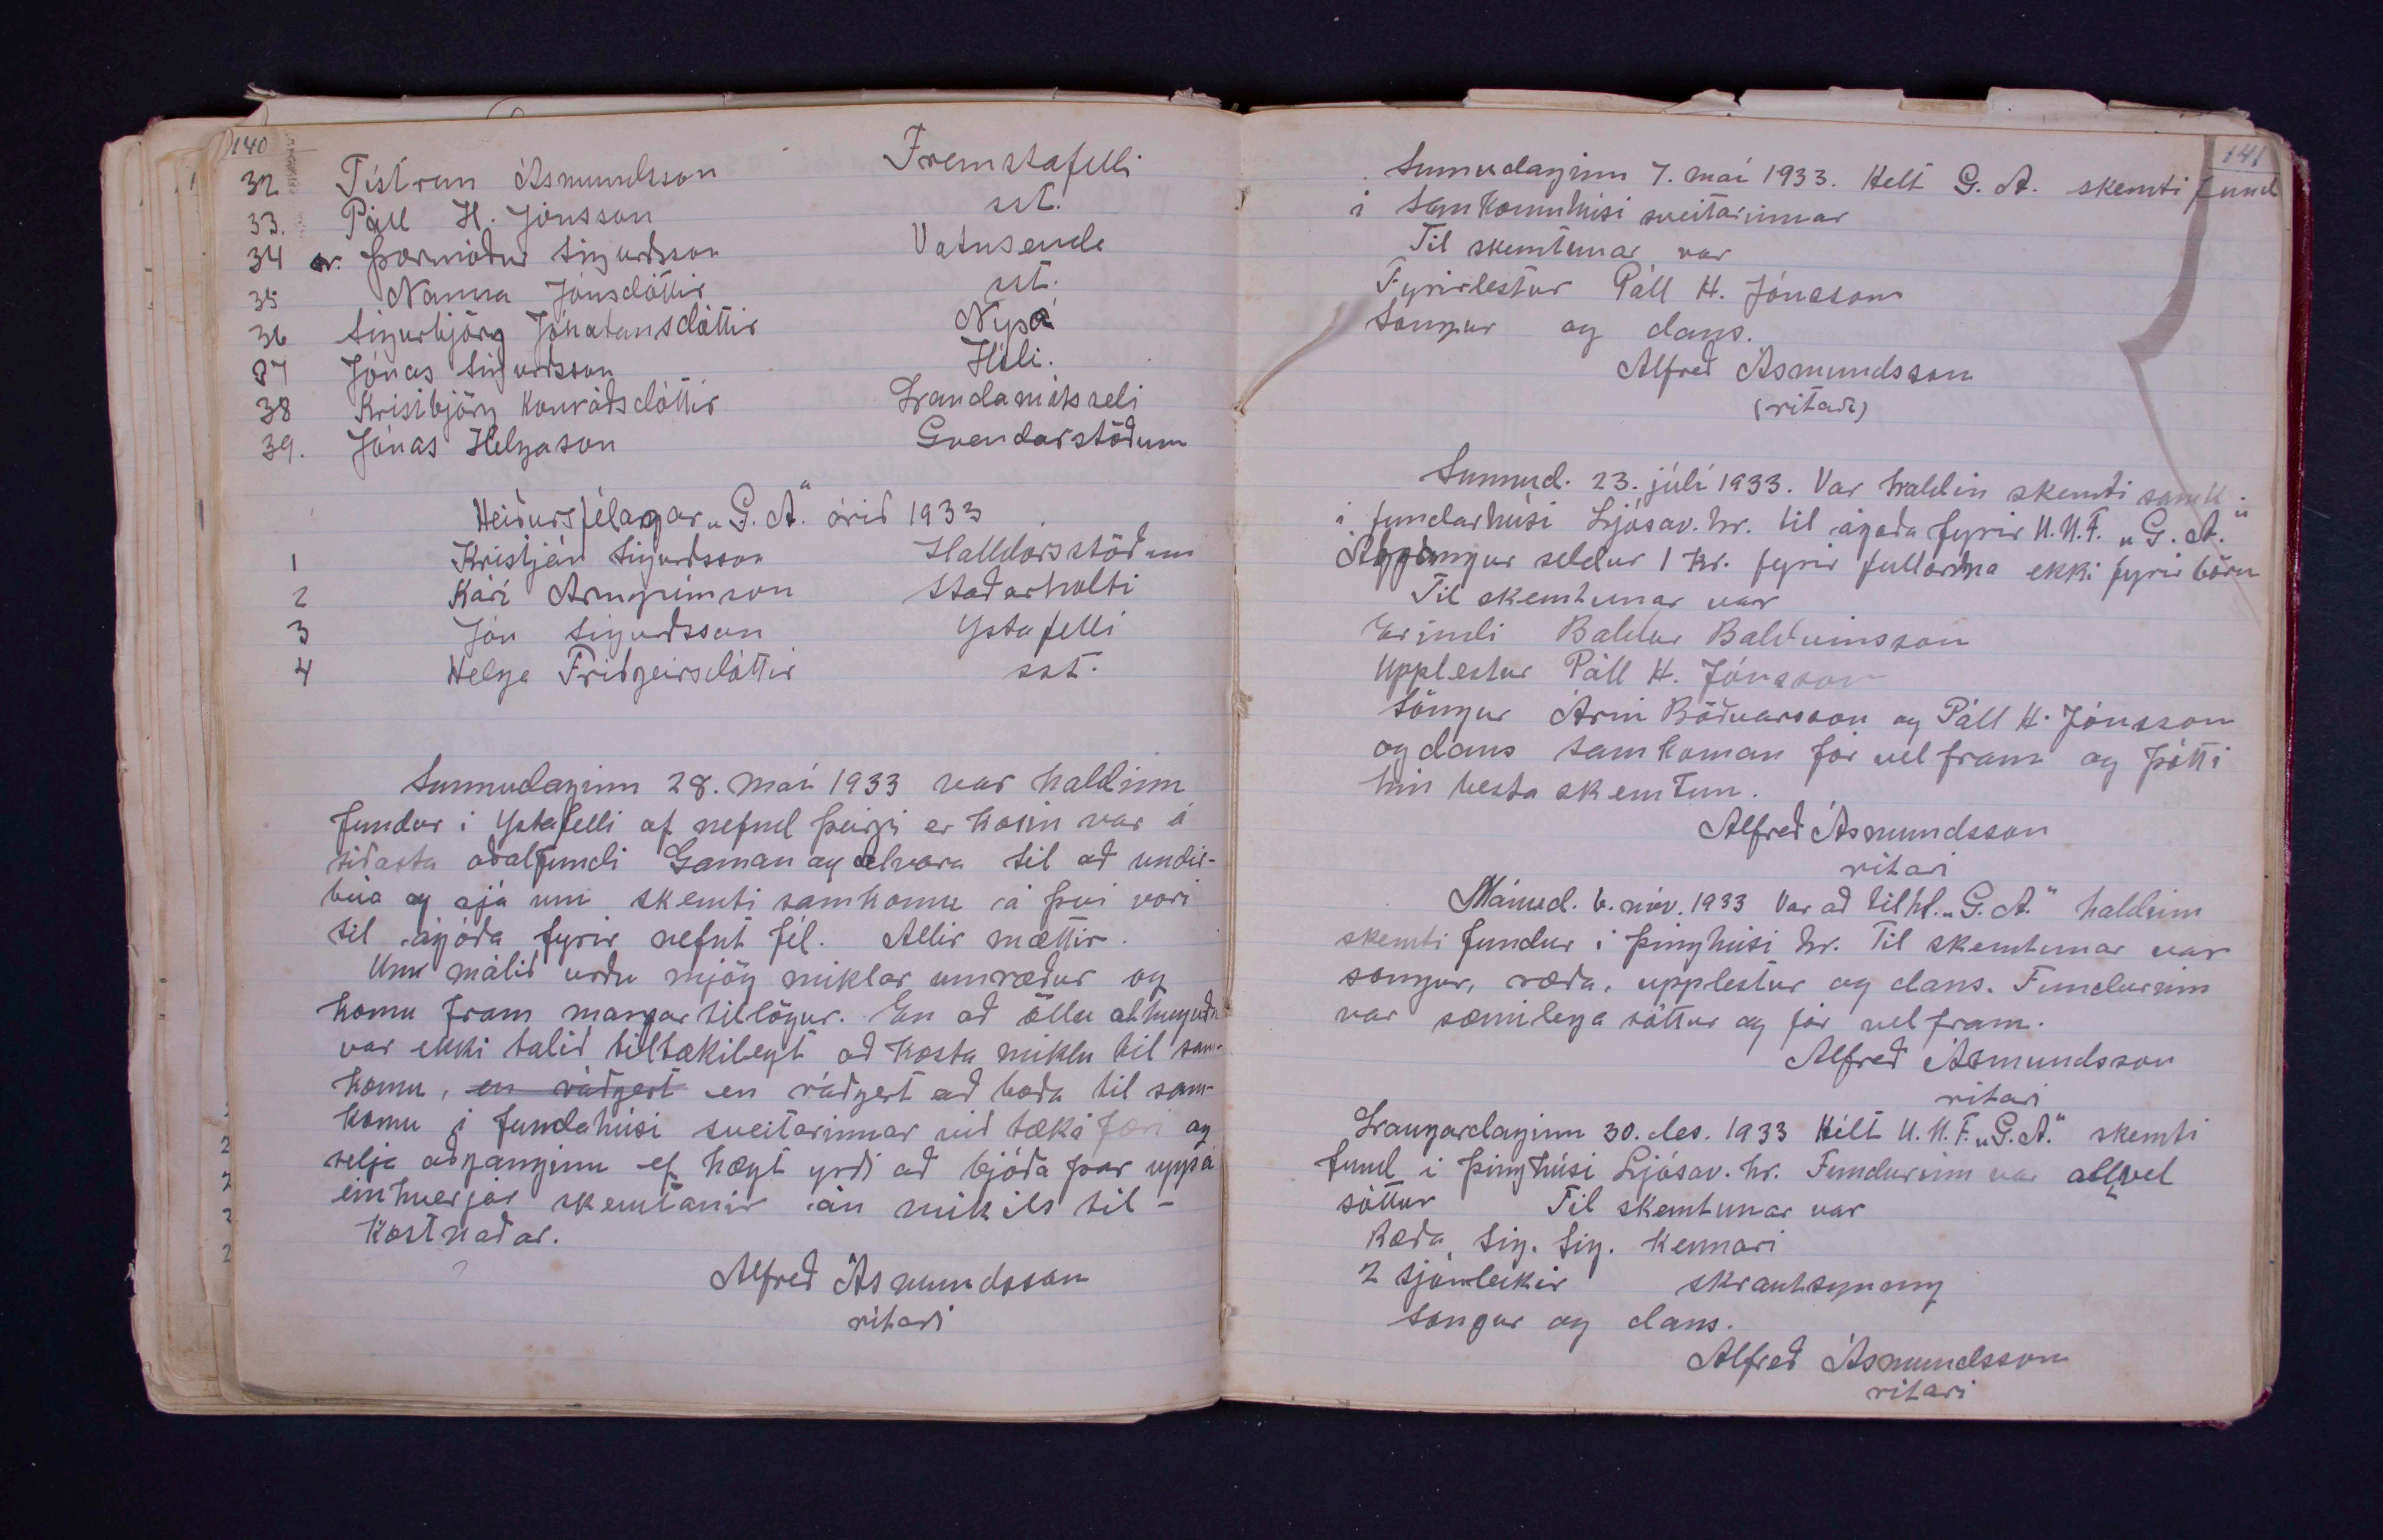 140
32 Tístran Ásmundsson Fremstafelli
33. Páll H. Jónsson sst.
34 Þormóður Sigurðsson Vatnsenda
35 Nanna Jónsdóttir sst.
36 Sigurbjörg Jónatansdóttir Nýpá
37 Jónas Sigurðsson Hóli.
38 Kristbjörg Konráðsdóttir Landamótsseli
39. Jónas Helgason Gvendarstöðum
Heiðursfélagar „G. A." árið 1933
1 Kristján Sigurðsson Halldórsstöðum
2 Kári Arngrímson Staðarholti
3 Jón Sigurðsson Ystafelli
4 Helga Friðgeirsdóttir sst.
Sunnudaginn 28. maí 1933 var haldinn
fundur í Ystafelli af nefnd þeirri er kosin var á
síðasta aðalfundi Gaman og alvara til að undir-
búa og sjá um skemti samkomu á því vori
til ágóða fyrir nefnt fél. Allir mættir.
Um málið urðu mjög miklar umræður og
komu fram margar tillögur. En að öllu athuguðu
var ekki talið tiltækilegt að kosta miklu til sam-
komu, en ráðgert en ráðgert að boða til sam-
komu í fundahúsi sveitarinnar við tækifæri og
selja aðganginn ef hægt yrði að bjóða þar uppá
einhverjar skemtanir án mikils til-
kostnaðar.
Alfreð Ásmundsson
ritari
141
Sunnudaginn 7. maí 1933. Helt G. A. skemtifund
í Samkomuhúsi sveitarinnar
Til skemtunar var
Fyrirlestur Páll H. Jónsson
Söngur og dans.
Alfreð Ásmundsson
(ritari)
Sunnud. 23. júlí 1933. Var haldin skemti samk.
í fundarhúsi Ljósav. hr. til ágóða fyrir U.M.F. „G. A."
Aðgangur seldur 1 kr. fyrir fullorðna ekki fyrir börn
Til skemtunar var
Erindi Baldur Baldvinsson
Upplestur Páll H. Jónsson
Söngur Árni Böðvarsson og Páll H. Jónsson
og dans Samkoman fór vel fram og þótti
hin besta skemtun.
Alfreð Ásmundsson
ritari
Mánud. 6. nóv. 1933 Var að tilhl. „G. A." haldinn
skemti fundur í þinghúsi hr. Til skemtunar var
söngur, ræða, upplestur og dans. Fundurinn
var sæmilega sóttur og fór vel fram.
Alfreð Ásmundsson
ritari
Laugardaginn 30. des. 1933 Hélt U.M.F. „G. A." skemti
fund í þinghúsi Ljósav. hr. Fundurinn var allvel
sóttur Til skemtunar var
Ræða, Sig. Sig. Kennari
2 sjónleikir skrautsýning
Söngur og dans.
Alfreð Ásmundsson
ritari